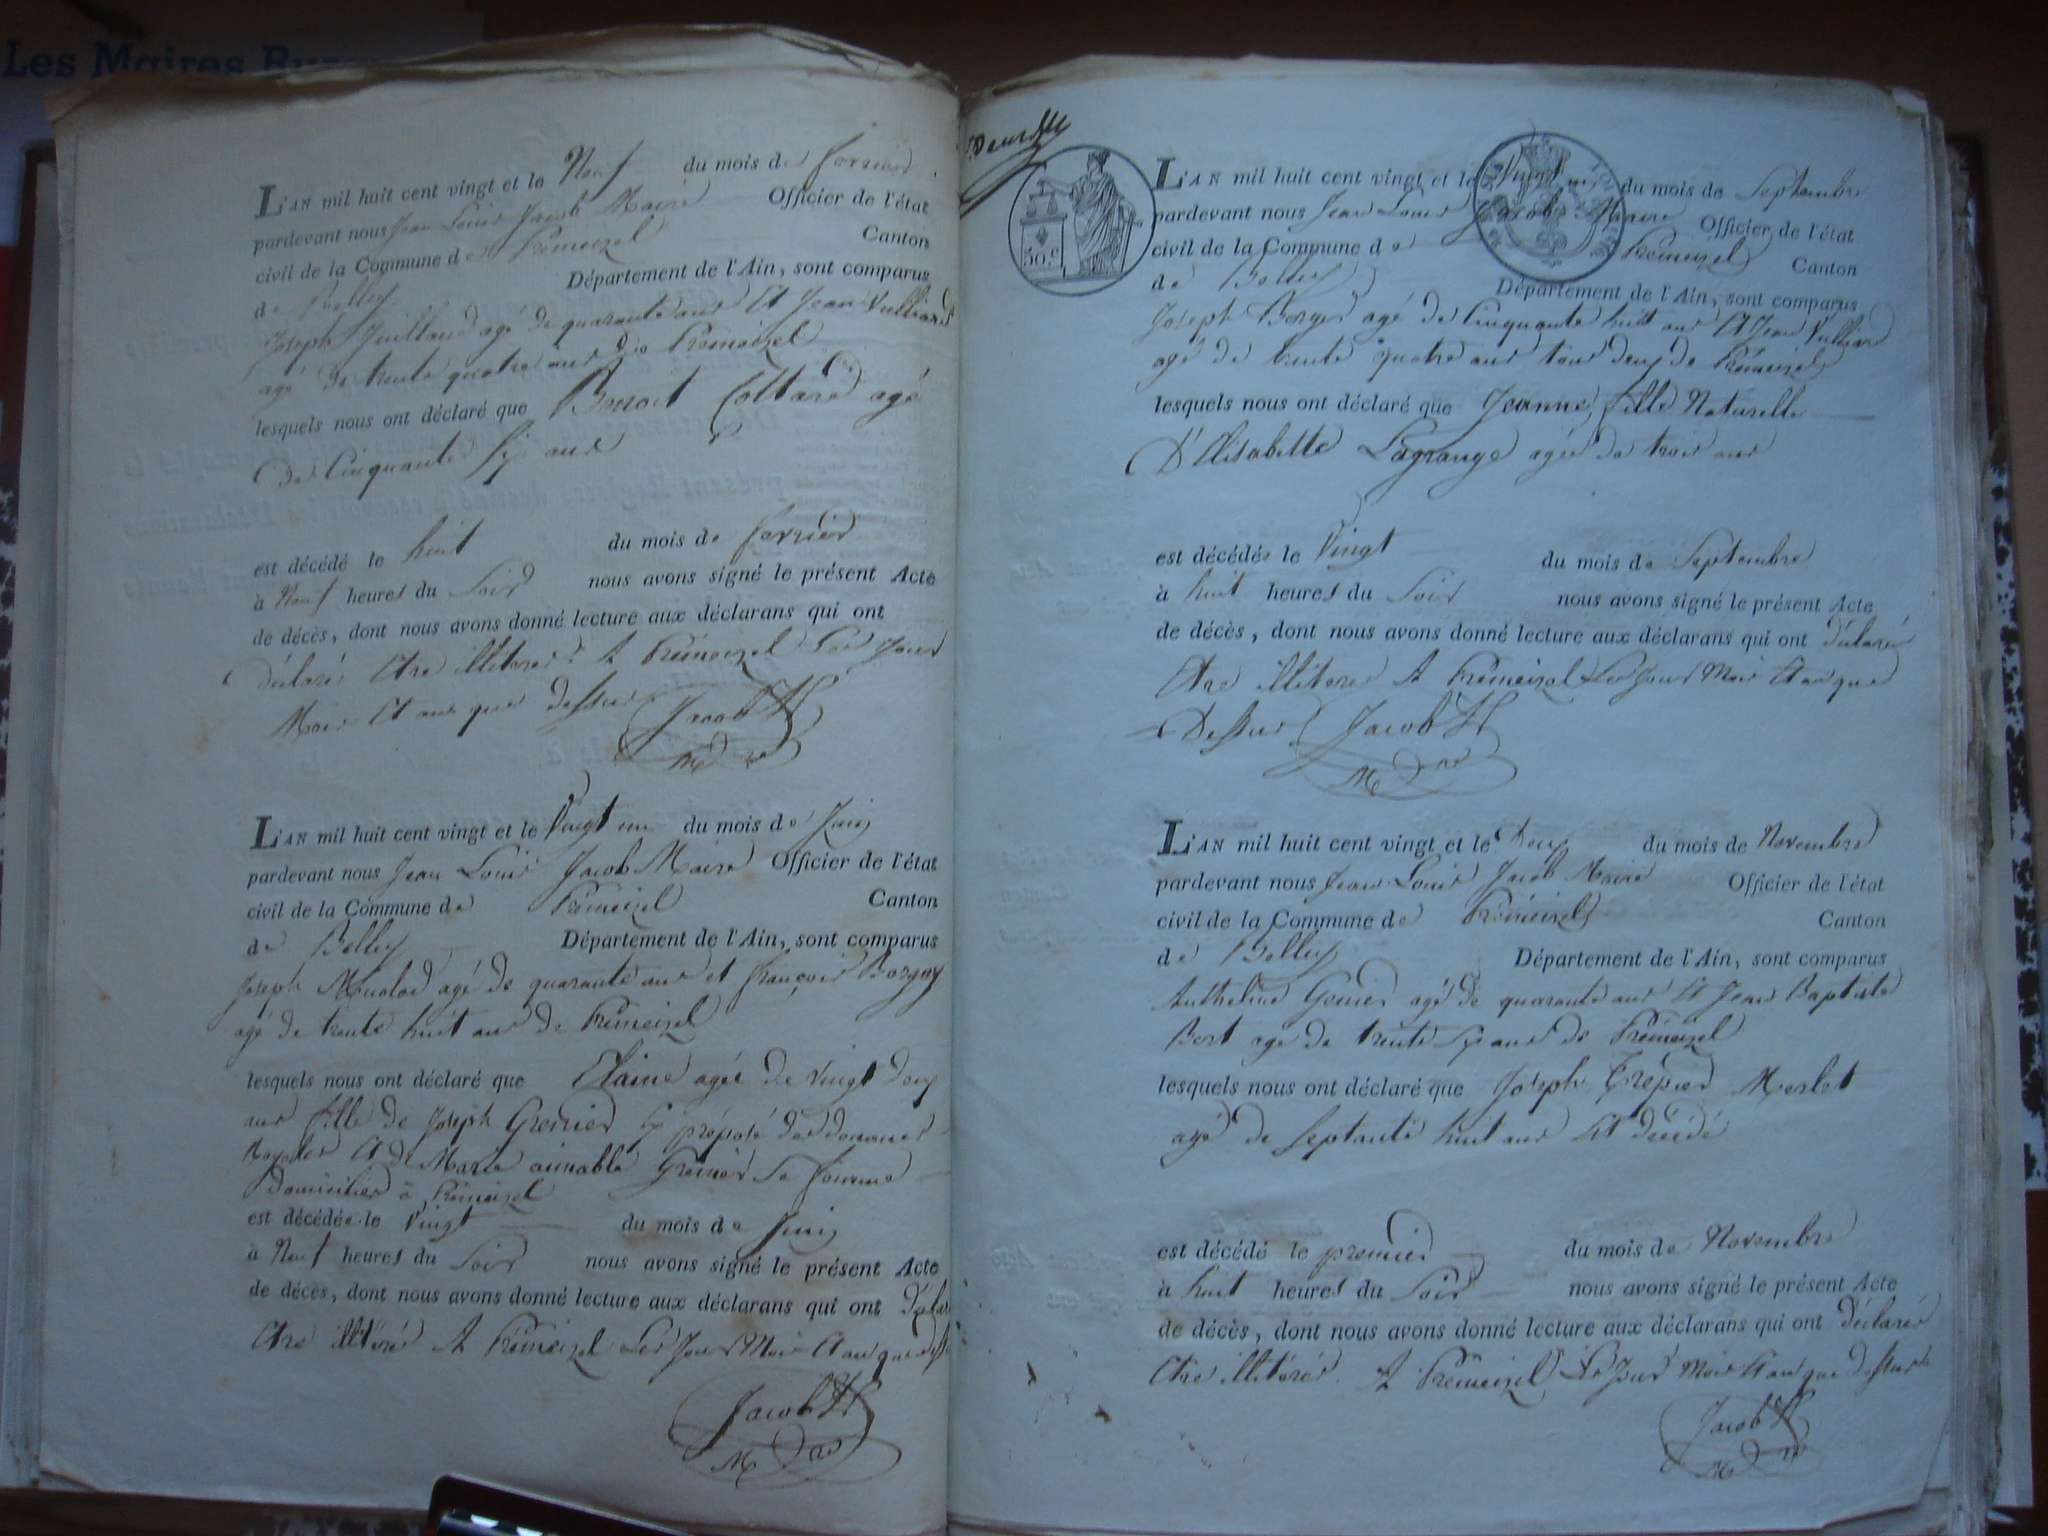 Les Maires
L'AN mil huit cent vingt et le Neuf du mois de fevrier
pardevant nous Jean Louis Jacob Maire Officier de l'état
civil de la Commune de Prémeizel Canton
de Belley Département de l'Ain, sont comparus
Joseph Juilland agé de quarante ans Et Jean Vulliard
agé de trente quatre ans de Prémeizel
lesquels nous ont déclaré que Benoit Collard agé
de Cinquante Six ans
est décédé le huit du mois de fevrier
à Neuf heures du Soir nous avons signé le présent Acte
de décès, dont nous avons donné lecture aux déclarans qui ont
déclaré Etre illiterés A Prémeizel Les Jour
Mois Et an que dessus Jacob
L'AN mil huit cent vingt et le Vingt un du mois de Juin
pardevant nous Jean Louis Jacob Maire Officier de l'état
civil de la Commune de Prémeizel Canton
de Belley Département de l'Ain, sont comparus
Joseph agé de quarante ans et françois
agé de trente huit ans de Prémeizel
lesquels nous ont déclaré que Claine agée de Vingt deux
ans fille de Joseph Grenier préposé des douanes
Royales Et de Marie aimable Grenier Sa femme
Domiciliés à Prémeizel
est décédée le Vingt du mois de Juin
à Neuf heures du Soir nous avons signé le présent Acte
de décès, dont nous avons donné lecture aux déclarans qui ont déclaré
Etre illitéré A Prémeizel Les Jour Mois Et an que
Jacob
50.c
L'AN mil huit cent vingt et le Vingt un du mois de Septembre
pardevant nous Jean Louis Jacob Maire Officier de l'état
civil de la Commune de Prémeizel Canton
de Belley Département de l'Ain, sont comparus
Joseph Berger agé de Cinquante huit ans Et Jean Vulliard
agé de trente quatre ans tous deux de Prémeizel
lesquels nous ont déclaré que Jeanne, fille Naturelle
D'Elisabette Lagrange agée de trois ans
est décédée le Vingt du mois de Septembre
à huit heures du Soir nous avons signé le présent Acte
de décès, dont nous avons donné lecture aux déclarans qui ont déclaré
Etre illiterés A Prémeizel Les Jour Mois Et an que
Dessus Jacob
L'AN mil huit cent vingt et le Deux du mois de Novembre
pardevant nous Jean Louis Jacob Maire Officier de l'état
civil de la Commune de Prémeizel Canton
de Belley Département de l'Ain, sont comparus
Anthelme Genier agé de quarante ans Et Jean Baptiste
Bert agé de trente Six ans de Prémeizel
lesquels nous ont déclaré que Joseph Trepier Merlet
agé de Septante huit ans Est décédé
est décédé le premier du mois de Novembre
à huit heures du Soir nous avons signé le présent Acte
de décès, dont nous avons donné lecture aux déclarans qui ont déclarés
Etre illitérés. A Prémeizel, Les Jour Mois Et an que dessus
Jacob